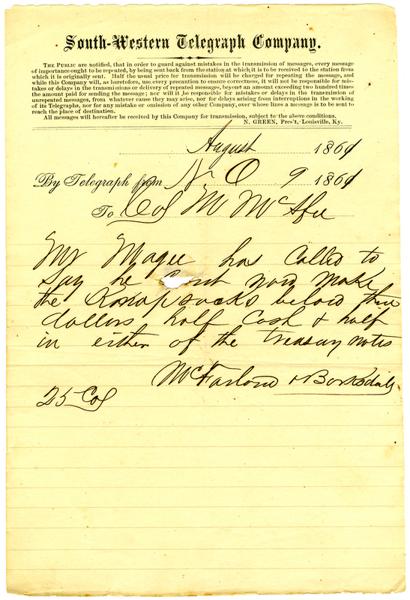 South-Western Telegraph Company.
THE PUBLIC are notified, that in order to guard against mistakes in the transmission of messages, every message
of importance ought to be repeated, by being sent back from the station at which it is to be received to the station from
which it is originally sent. Half the usual price for transmission will be charged for repeating the message, and
while this Company will, as heretofore, use every precaution to ensure correctness, it will not be responsible for mis-
takes or delays in the transmissions or delivery of repeated messages, beyond an amount exceeding two hundred times
the amount paid for sending the message; nor will it be responsible for mistakes or delays in the transmission of
unrepeated messages, from whatever cause they may arise, nor for delays arising from interruptions in the working
of its Telegraphs, nor for any mistake or omission of any other Company, over whose lines a message is to be sent to
reach the place of destination.
All messages will hereafter be received by this Company for transmission, subject to the above conditions.
N. GREEN, Pres't, Louisville, Ky.
August 1861
By Telegraph from N. O 9 1861
To Col M McAfee
Mr Magee has Called to
say he Cont now make
the Knapsacks below three
dollars half Cash & half
in either of the treasury notes
McFarland & Barksdale
25 Col